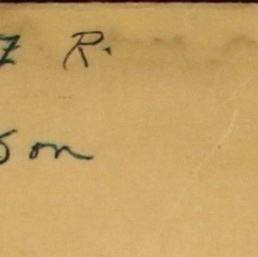 R.
son